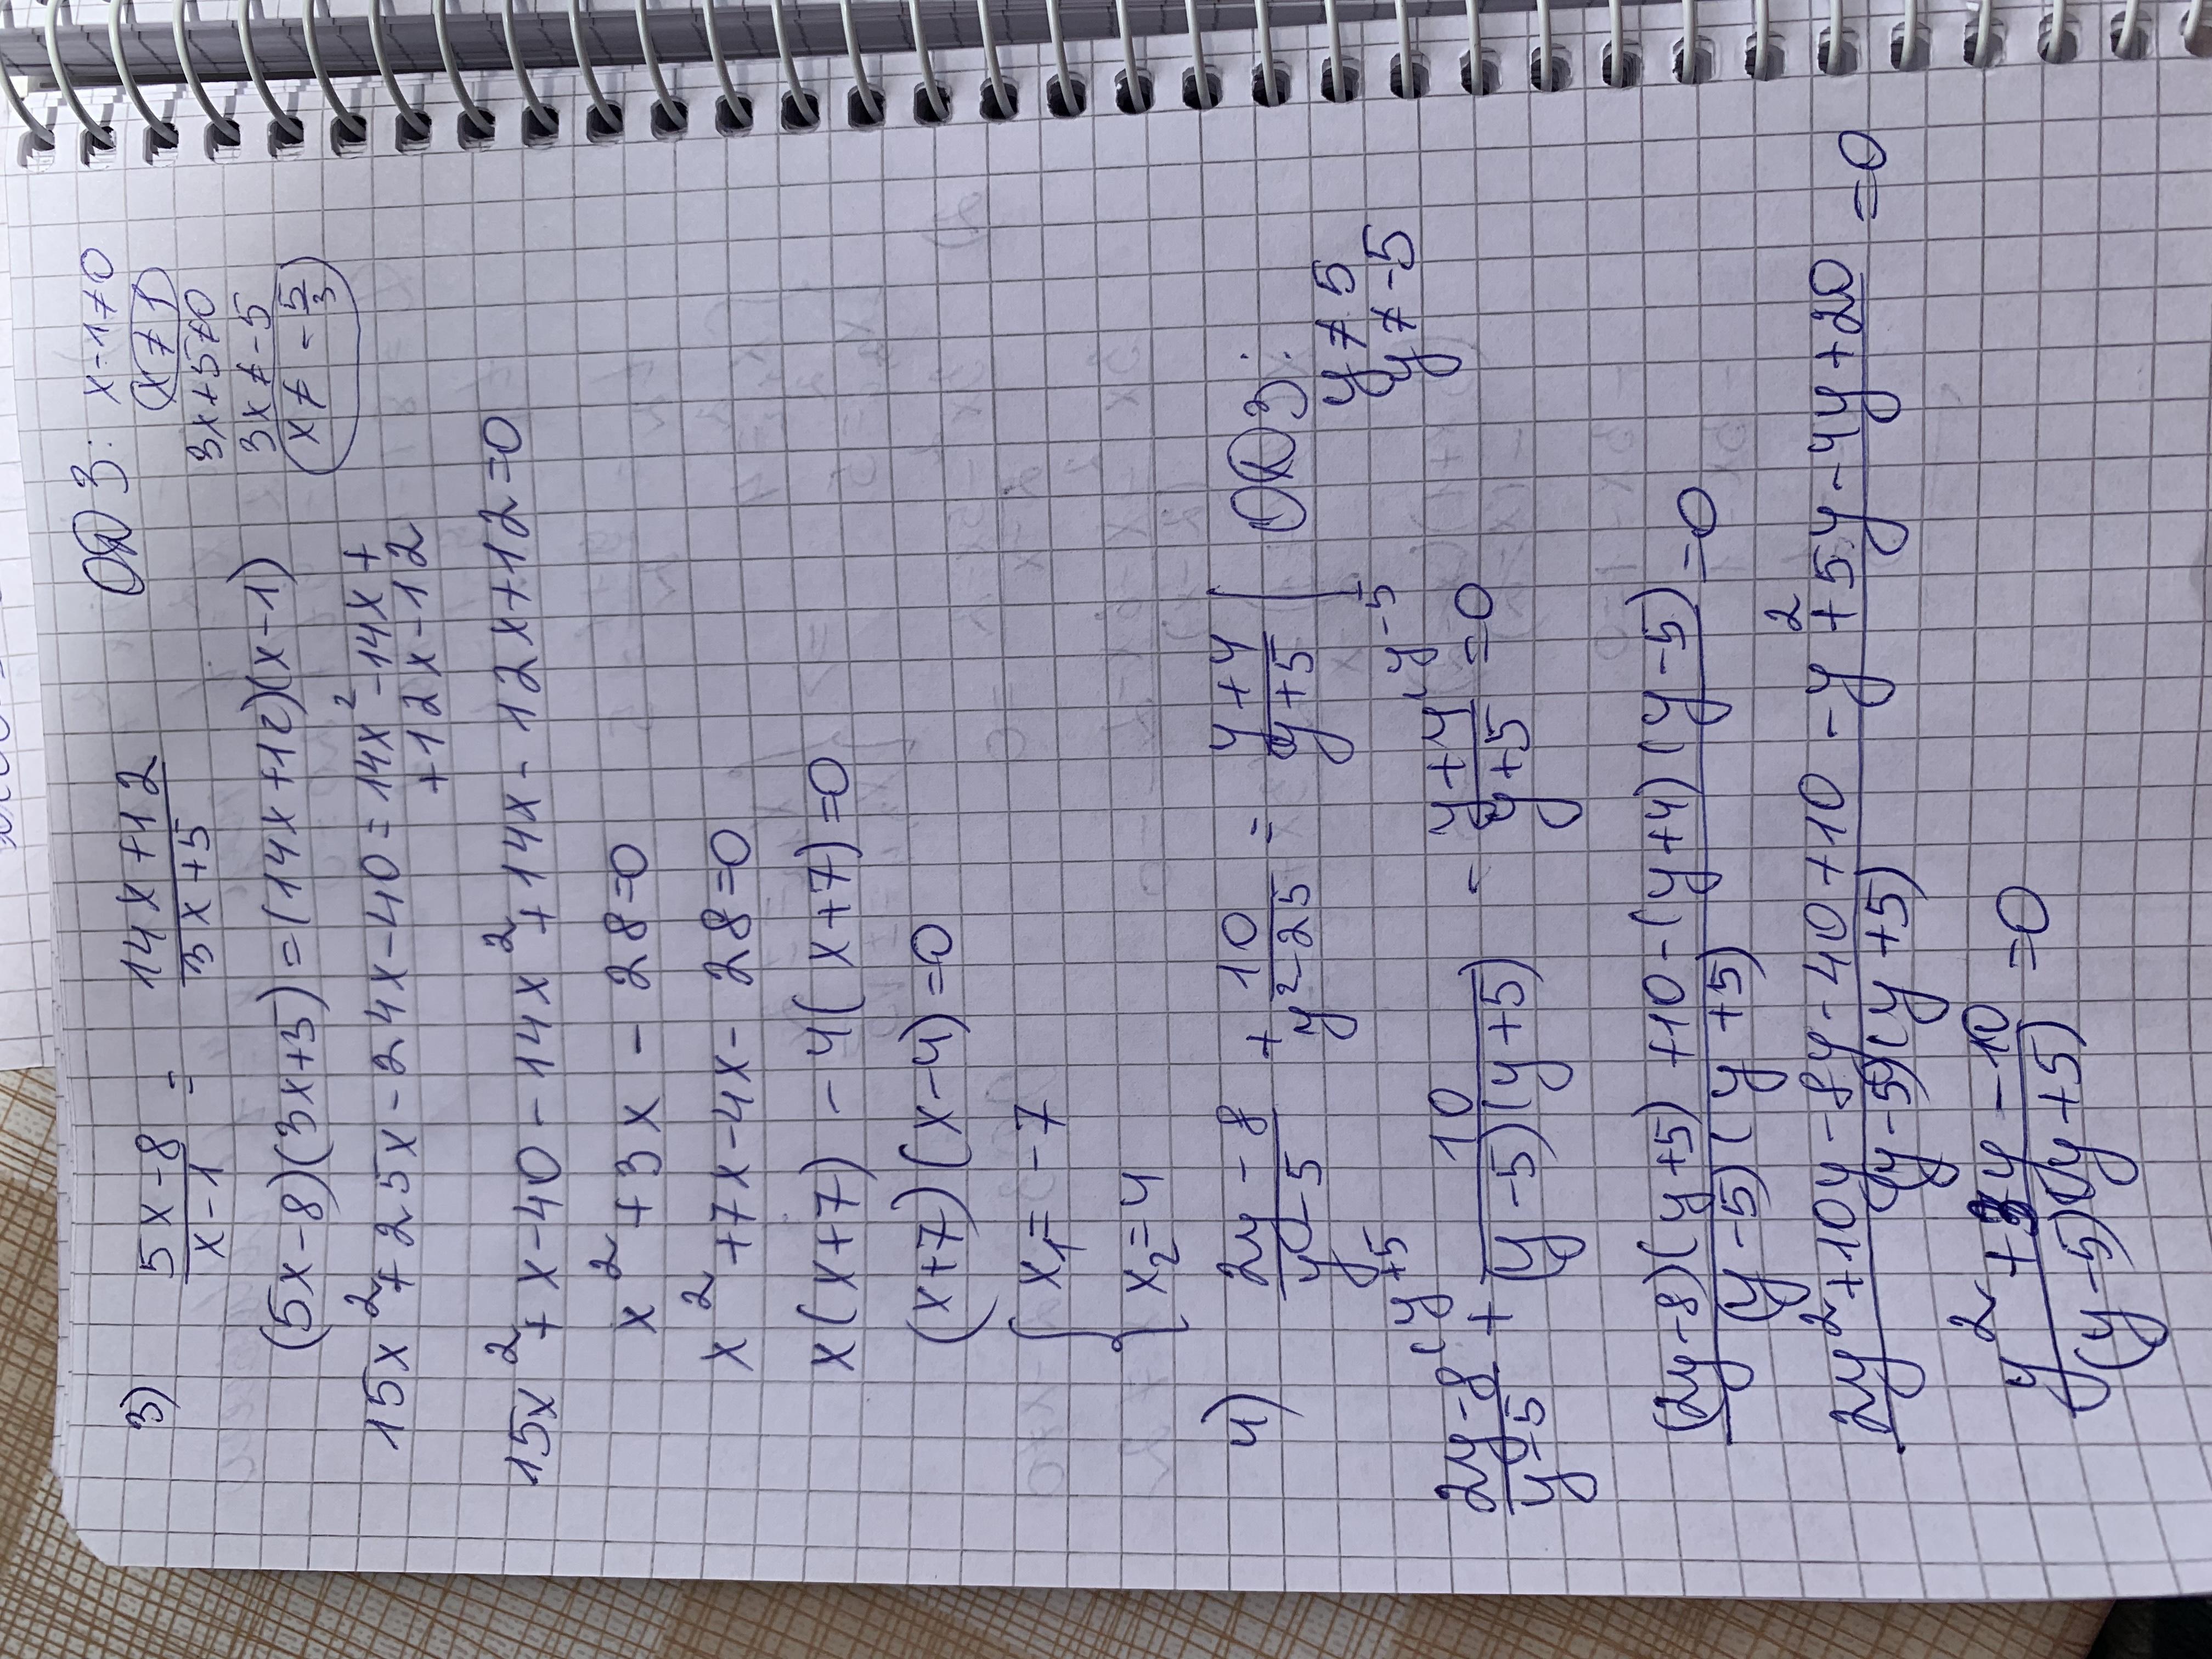 3) (5x-8)/(x-1) = (14x+12)/(3x+5) ОДЗ: x-1≠0
x≠1
3x+5≠0
3x≠-5
x≠-5/3
(5x-8)(3x+5)=(14x+12)(x-1)
15x²+25x-24x-40=14x²-14x+
+12x-12
15x²+x-40-14x²+14x-12x+12=0
x²+3x-28=0
x²+7x-4x-28=0
x(x+7)-4(x+7)=0
(x+7)(x-4)=0
{ x₁=-7
x₂=4
4) (2y-8)/(y-5) + 10/(y²-25) = (y+4)/(y+5) ОДЗ:
y≠5
y≠-5
(2y-8)/(y-5) ⁽ʸ⁺⁵ + 10/((y-5)(y+5)) - (y+4)/(y+5) ⁽ʸ⁻⁵ =0
((2y-8)(y+5)+10-(y+4)(y-5))/((y-5)(y+5)) =0
(2y²+10y-8y-40+10-y²+5y-4y+20)/((y-5)(y+5)) =0
(y²+3y-10)/((y-5)(y+5)) =0